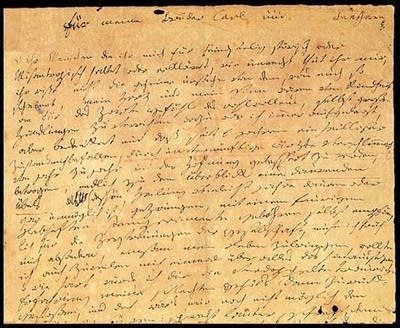 für meine Brüder Carl und
O ihr Menschen die ihr mich für feindseelig störisch oder
Misantropisch haltet oder erkläret, wie unrecht thut ihr mir,
ihr wißt nicht die geheime ursache von dem, was euch so
scheinet, mein Herz und mein Sinn waren von Kindheit
an für das Zarte Gefühl des wohlwollens, selbst große
Handlungen zu verrichten dazu war ich immer aufgelegt
aber bedenket nur daß seit 6 jahren ein heilloser
Zustand mich befallen, durch unvernünftige ärzte verschlimmert
von jahr zu jahr in der Hofnung gebessert zu werden
betrogen, endlich zu dem überblick eines daurenden
Übels dessen Heilung vieleicht jahre dauren oder
gar unmöglich ist gezwungen, mit einem feurigen
Lebhaften Temperamente gebohren selbst empfänglich
für die Zerstreuungen der Gesellschaft, muste ich früh
mich absondern, einsam mein Leben zubringen, wollte
ich auch zuweilen mich einmal über alles das hinaussezen,
o wie hart wurde ich die verdoppelte traurige
Erfahrung meines schlechten Gehörs dann zurück
gestoßen, und doch war's mir noch nicht möglich den
sprecht lauter denn